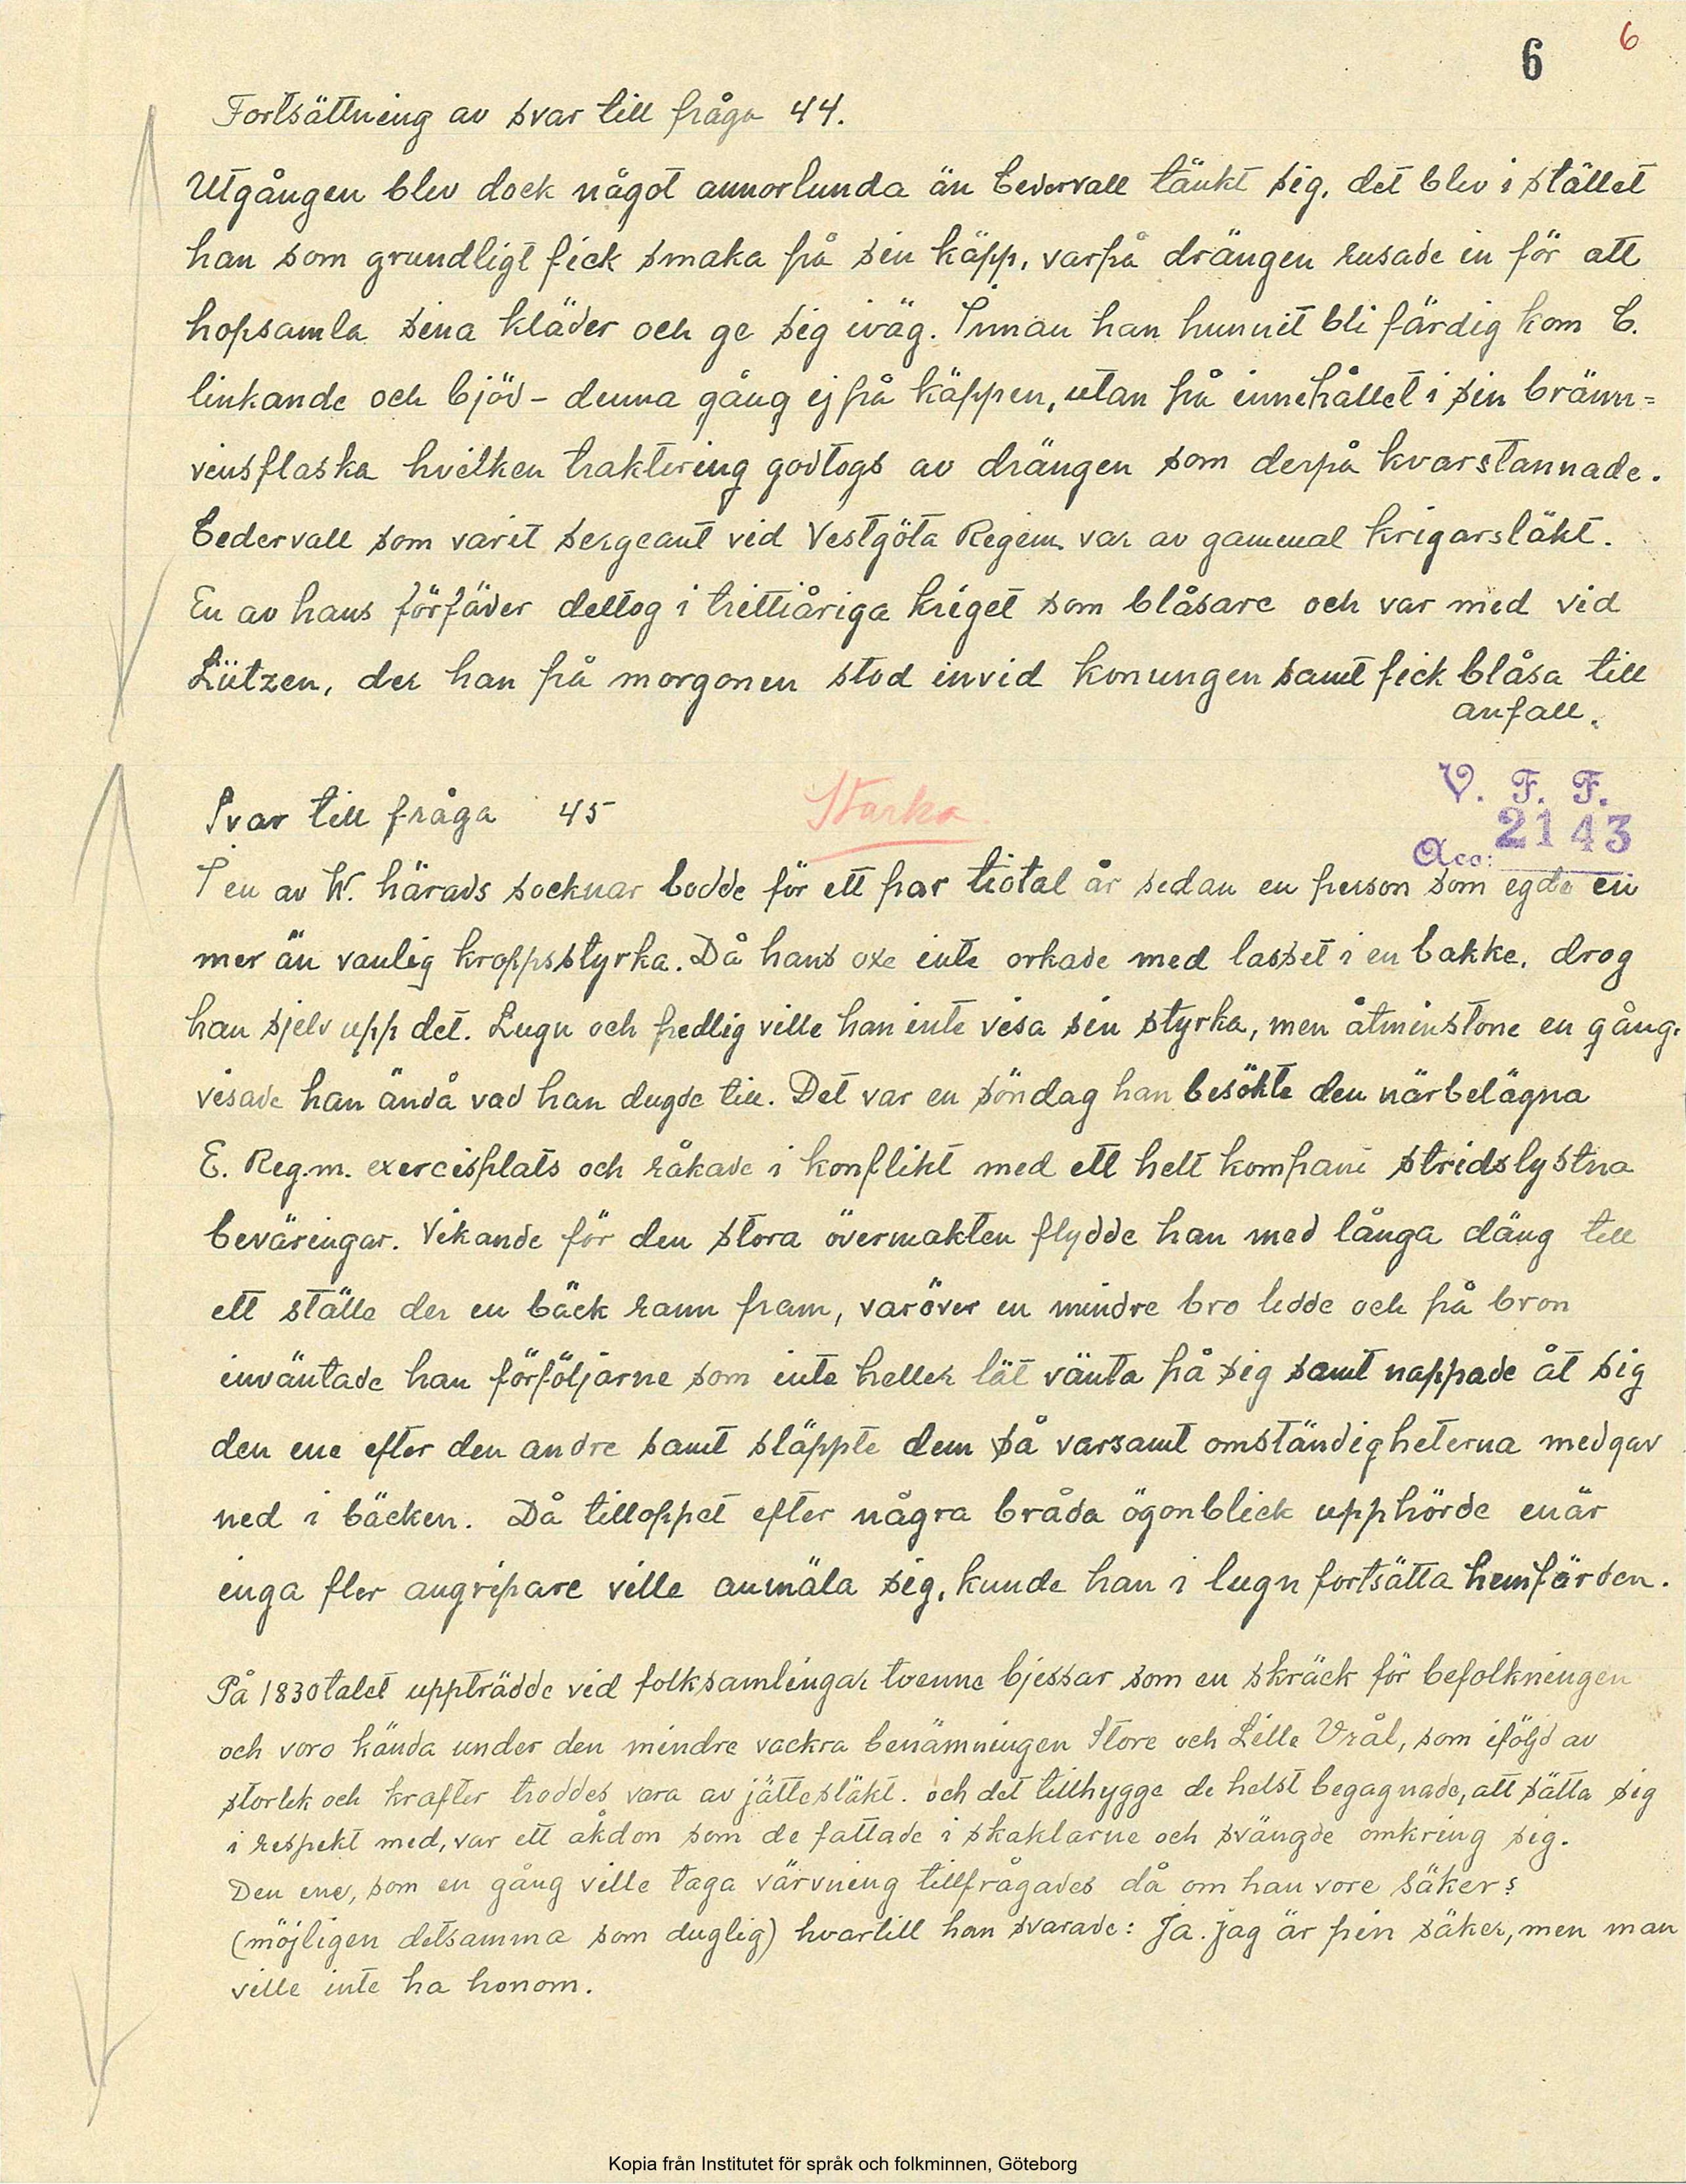 6 6
Fortsättning av svar till fråga 44.
Utgången blev dock något annorlunda än Cedervall tänkt sig, det blev i stället
han som grundligt fick smaka på sin käpp, varpå drängen rusade in för att
hopsamla sina kläder och ge sig iväg. Innan han hunnit bli färdig kom C.
linkande och bjöd - denna gång ej på käppen, utan på innehållet i sin bränn=
vinsflaska hvilken traktering godtogs av drängen som derpå kvarstannade.
Cedervall som varit sergeant vid Vestgöta Regem. var av gammal krigarsläkt.
En av hans förfäder deltog i trettiåriga kriget som blåsare och var med vid
Lützen, der han på morgonen stod invid konungen samt fick blåsa till
anfall.
Svar till fråga 45
Starka
V. F. F.
Acc: 2143
I en av W. härads socknar bodde för ett par tiotal år sedan en person som egde en
mer än vanlig kroppsstyrka. Då hans oxe inte orkade med lasset i en bakke, drog
han sjelv upp det. Lugn och fredlig ville han inte visa sin styrka, men åtminstone en gång.
visade han ändå vad han dugde till. Det var en söndag han besökte den närbelägna
E. Reg.m. exercisplats och råkade i konflikt med ett helt kompani stridslystna
beväringar. Vikande för den stora övermakten flydde han med långa däng till
ett ställe der en bäck rann fram, varöver en mindre bro ledde och på bron
inväntade han förföljarne som inte heller lät vänta på sig samt nappade åt sig
den ene efter den andre samt släppte dem så varsamt omständigheterna medgav
ned i bäcken. Då tilloppet efter några bråda ögonblick upphörde enär
inga fler angripare ville anmäla sig, kunde han i lugn fortsätta hemfärden.
På 1830talet uppträdde vid folksamlingar tvenne bjessar som en skräck för befolkningen
och voro kända under den mindre vackra benämningen Store och Lille Vrål, som iföljd av
storlek och krafter troddes vara av jättesläkt. och det tillhygge de helst begagnade, att sätta sig
i respekt med, var ett åkdon som de fattade i skaklarne och svängde omkring sig.
Den ene, som en gång ville taga värvning tillfrågades då om han vore säker?
(möjligen detsamma som duglig) hvartill han svarade: Ja. jag är pin säker, men man
ville inte ha honom.
Kopia från Institutet för språk och folkminnen, Göteborg